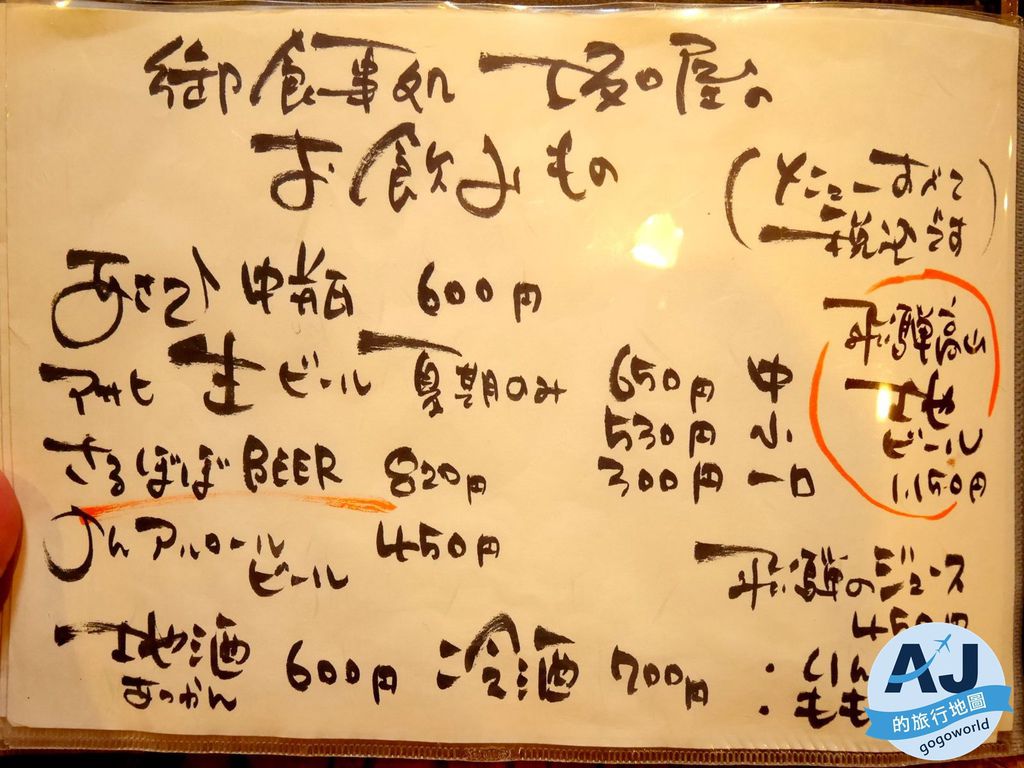 御食事処 坂口屋の
お飲みもの
(メニューすべて
税込です)
あさひ 中瓶 600円
アサヒ 生ビール 夏期のみ 650円 中
530円 小
300円 一口
さるぼぼBEER 820円
のんアルコール
ビール 450円
地酒 600円 冷酒 700円
あつかん
飛騨高山
地
ビール
1,150円
飛騨のジュース
450円
・りん
・もも
AJ
的旅行地圖
gogoworld